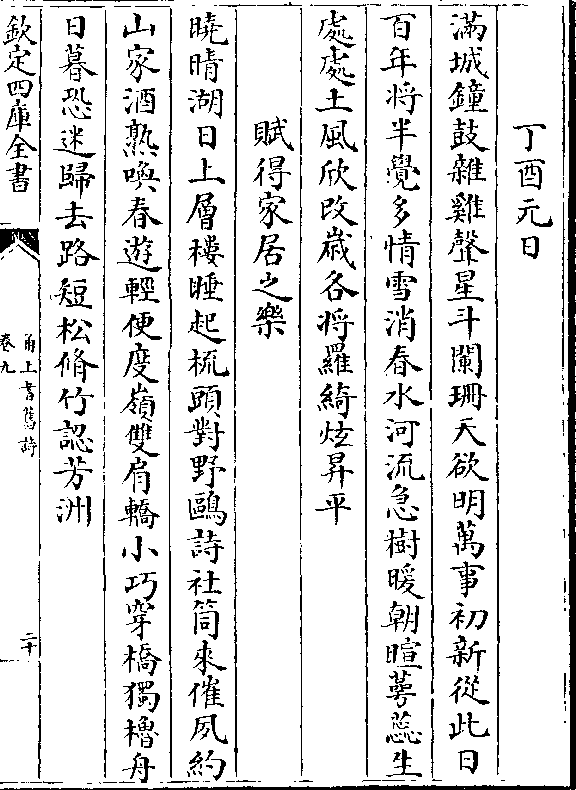 丁酉元日
滿城鐘鼓雜雞聲星斗闌珊天欲明萬事初新從此日
百年將半覺多情雪消春水河流急樹暖朝暄萼蕊生
處處土風欣改歲各將羅綺炫昇平
賦得家居之樂
曉晴湖日上層樓睡起梳頭對野鷗詩社筒來催夙約
山家酒熟喚春遊輕便度嶺雙肩轎小巧穿橋獨櫓舟
日暮恐迷歸去路短松脩竹認芳洲
欽定四庫全書
甬上耆舊詩
卷九
二十